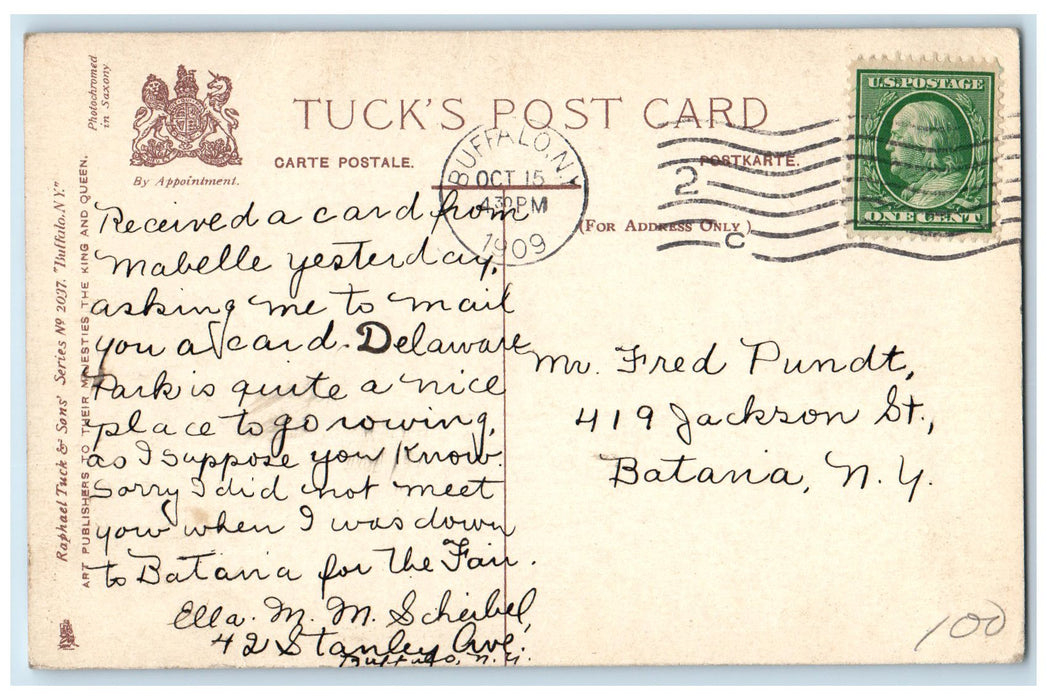 Photochromed
in Saxony
By Appointment.
Raphael Tuck & Sons' Series Nº 2037. "Buffalo. N.Y."
ART PUBLISHERS TO THEIR MAJESTIES THE KING AND QUEEN.
TUCK'S POST CARD
CARTE POSTALE.
POSTKARTE.
(For Address Only)
BUFFALO, N.Y.
OCT 15
430PM
1909
2
C
U.S. POSTAGE
ONE CENT
Received a card from
Mabelle yesterday,
asking me to mail
you a card. Delaware
Park is quite a nice
place to go rowing,
as I suppose you know.
Sorry I did not meet
you when I was down
to Batavia for the Fair.
Ella. M. M. Scheibel,
42 Stanley Ave.
Buffalo, N.Y.
Mr. Fred Pundt,
419 Jackson St.,
Batavia, N.Y.
100